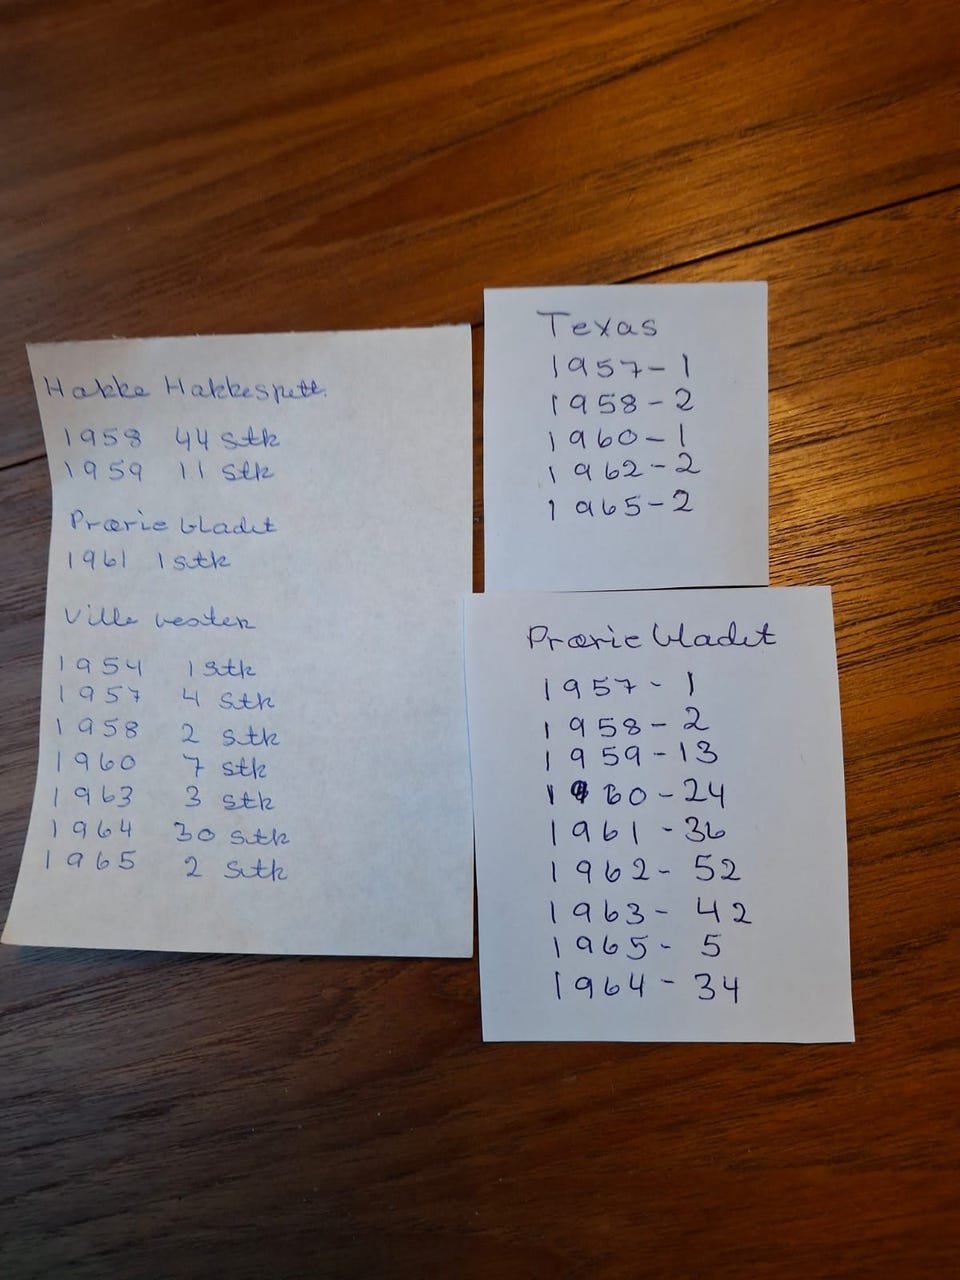 Hakke Hakkespett.
1958 44 stk
1959 11 stk
Prærie bladet
1961 1 stk
Ville vesten
1954 1 stk
1957 4 stk
1958 2 stk
1960 7 stk
1963 3 stk
1964 30 stk
1965 2 stk
Texas
1957-1
1958-2
1960-1
1962-2
1965-2
Prærie bladet
1957-1
1958-2
1959-13
1960-24
1961-36
1962-52
1963-42
1965-5
1964-34